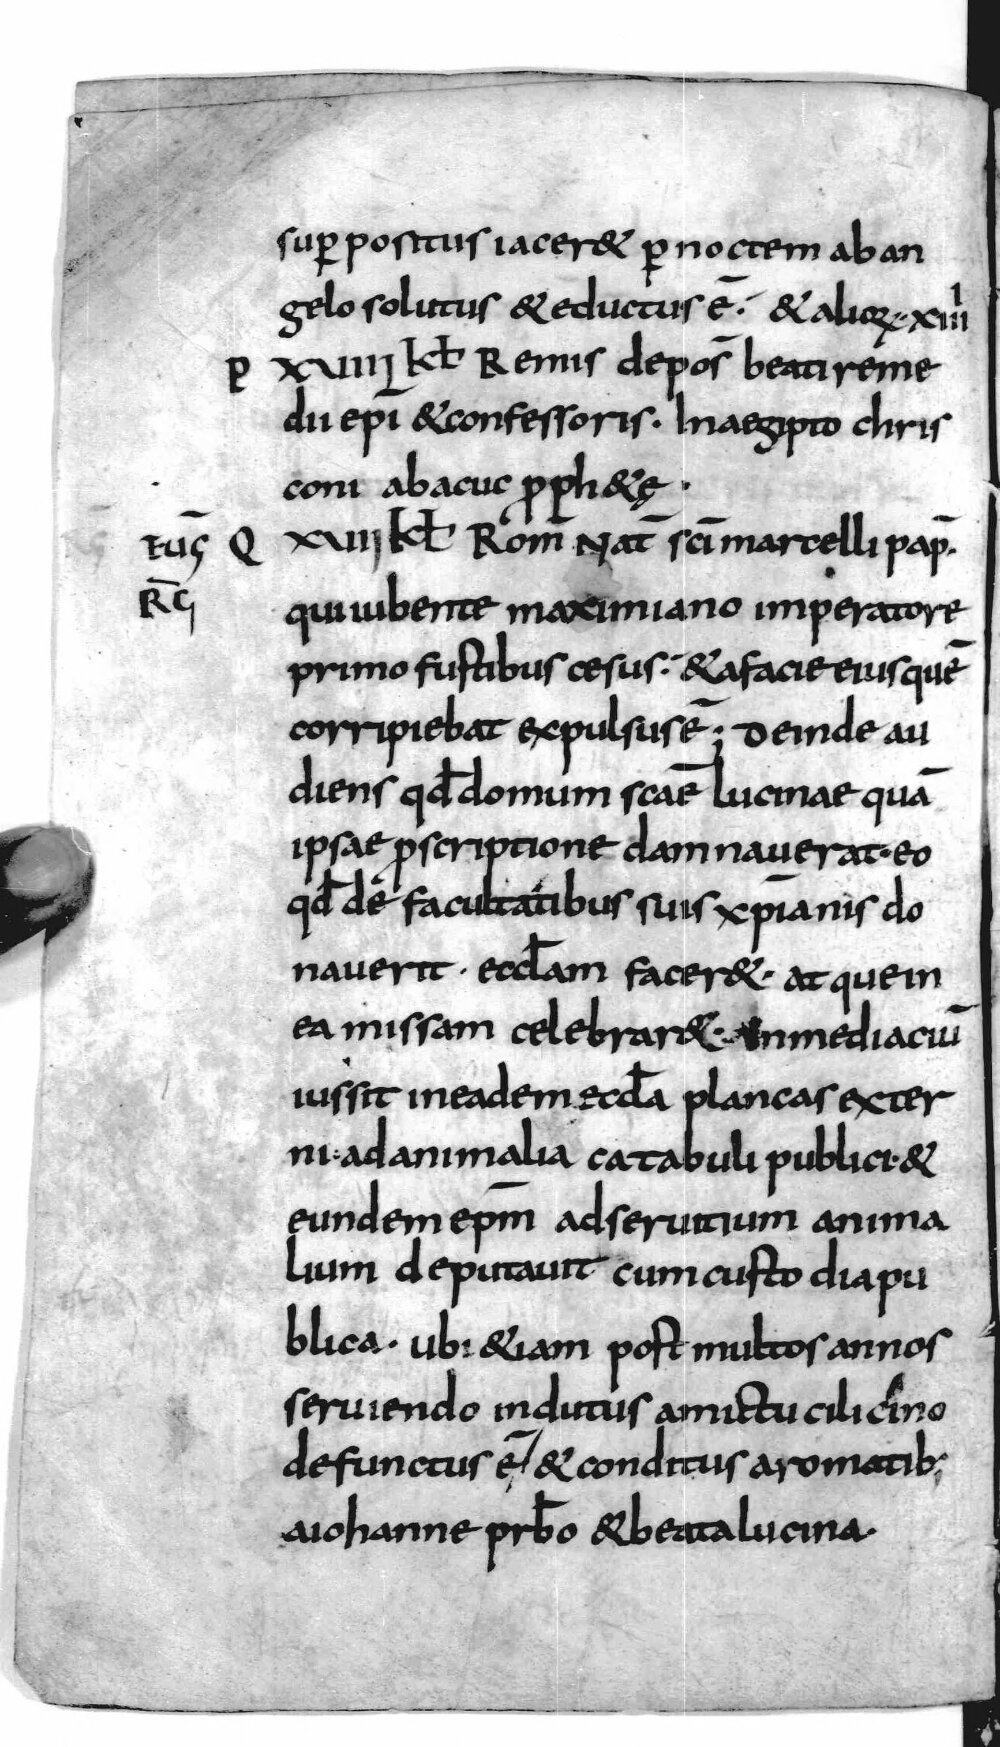 suꝑpositus iacer& ꝑ noctem ab an
gelo solutus & eductus ē· & alioꝝ· xiiii
P XVIIII kł Remis depos̄ beati reme
dii epī & confessoris· In aegipto chris
coni abacuc ꝓph&ę·
Q XVIII kł Rom̄ Nat̄ sc̄i marcelli pap̄·
qui iubente maximiano imperatore
primo fustibus cesus· & a facie eius quē
corripiebat expulsus ē; Deinde au
diens qd̄ domum scae̅ lucinae quā
ipsae ꝓscriptione damnauerat· eo
qd̄ de facultatibus suis xp̄ianis do
nauerit· eccl̄am facer&· atque in
ea missam celebrar&· in media ciui̅
iussit in eadem eccl̄a plancas exter
ni· ad animalia catabuli publici· &
eundem epm̄ ad seruitium anima
lium deputauit cum custodia pu
blica· ubi &iam post multos annos
seruiendo indutus amictu cilicino
defunctus ē/ & conditus aromatib;
a iohanne prb̄o & beata lucina·